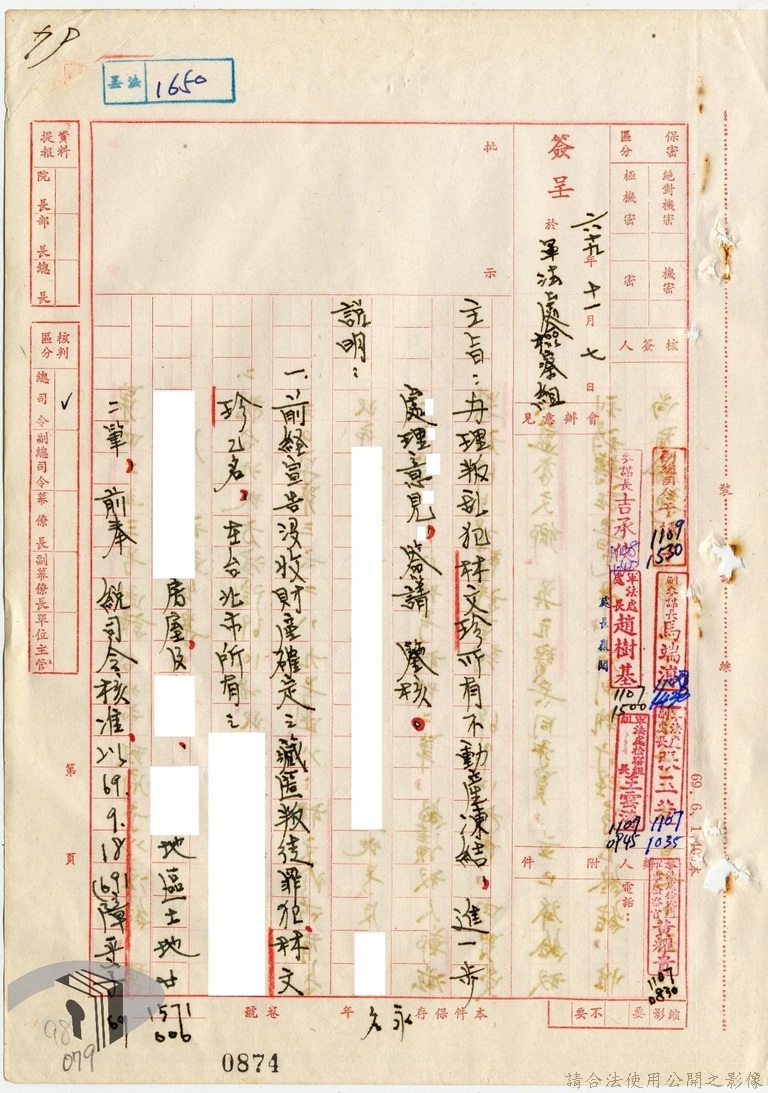 法罢 1650
保密區分
絕對機密
極機密
機密
密
核簽人
簽呈
於
六十九年十一月七日
軍法處檢察組
會辦意見
批示
資料提報
院長
部長
總長
核判區分
總司令
副總司令
幕僚長
副幕僚長
單位主管
✓
1109 1530
參謀長 吉承
副參謀長 馬端
軍法處處長 趙樹基
1107 1500
軍法處檢察組組長 王雲
1107 0945
1107 1035
1107 0830
附件
電話:
主旨:办理叛乱犯林文珍所有不動產凍結,進一步
處理意見,簽請 鑒核。
說明:
一、前經宣告沒收財產確定之藏匿叛徒罪犯林文
珍乙名,在台北市所有之
房屋及、地區土地廿
二筆,前奉 總司令核准以69.9.18(69)障
1571
006
69
第頁
縮影要不要
本件保存永久年
卷號
0874
98
079
裝
69. 6. 1
請合法使用公開之影像